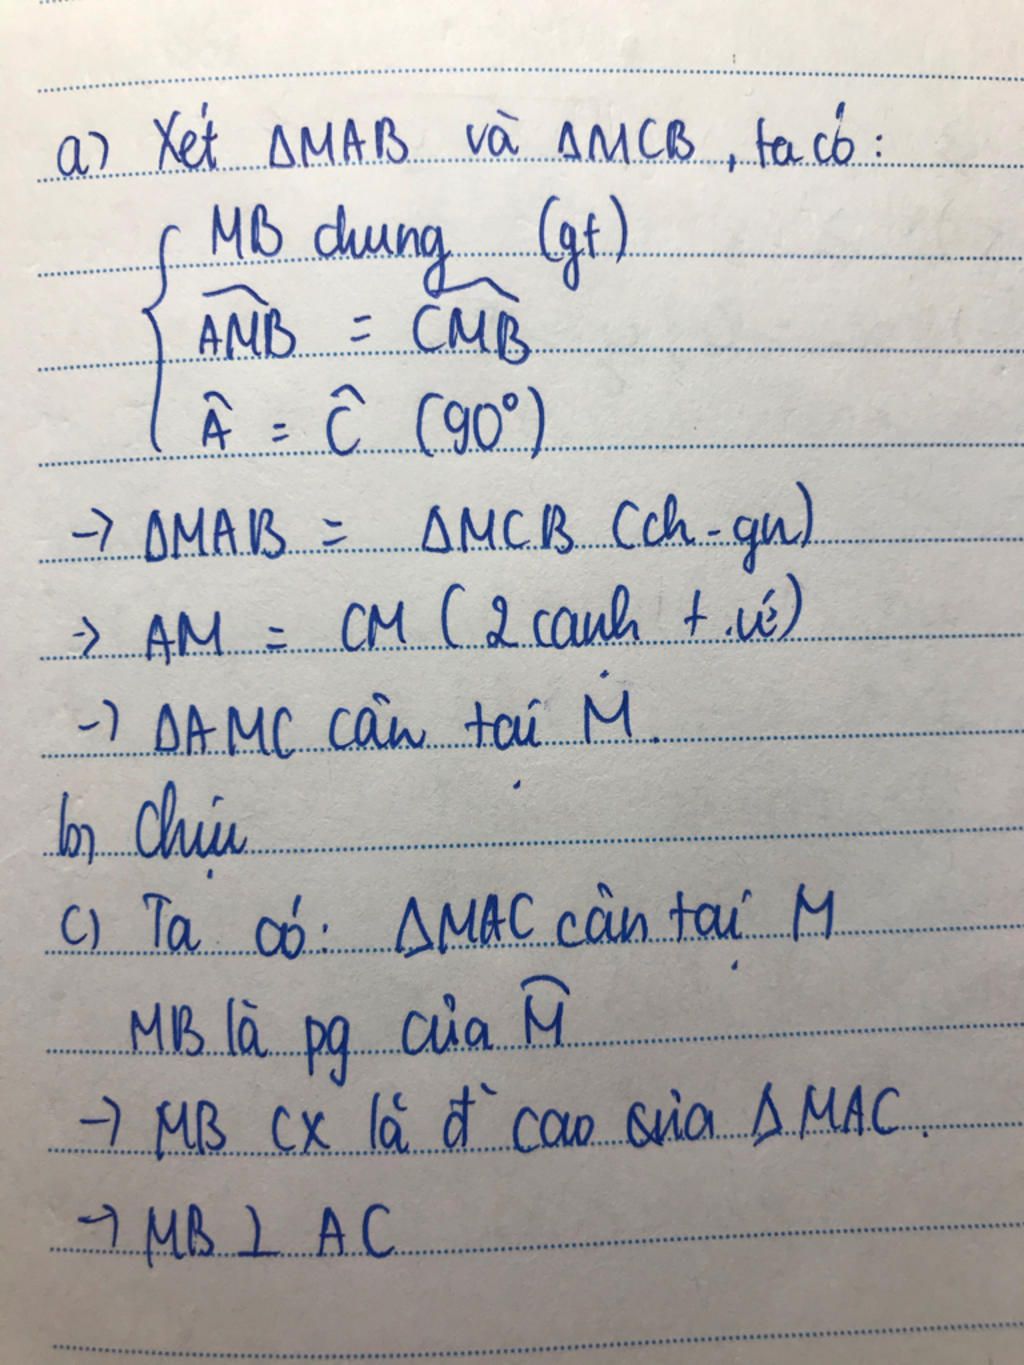 a) Xét ΔMAB và ΔMCB, ta có:
MB chung (gt)
AMB = CMB
Â = Ĉ (90°)
-> ΔMAB = ΔMCB (ch-gn)
-> AM = CM (2 cạnh t.ứ)
-> ΔAMC cân tại M.
b) Chịu
c) Ta có: ΔMAC cân tại M
MB là pg của M̂
-> MB cx là đ̀ cao của ΔMAC.
-> MB ⊥ AC